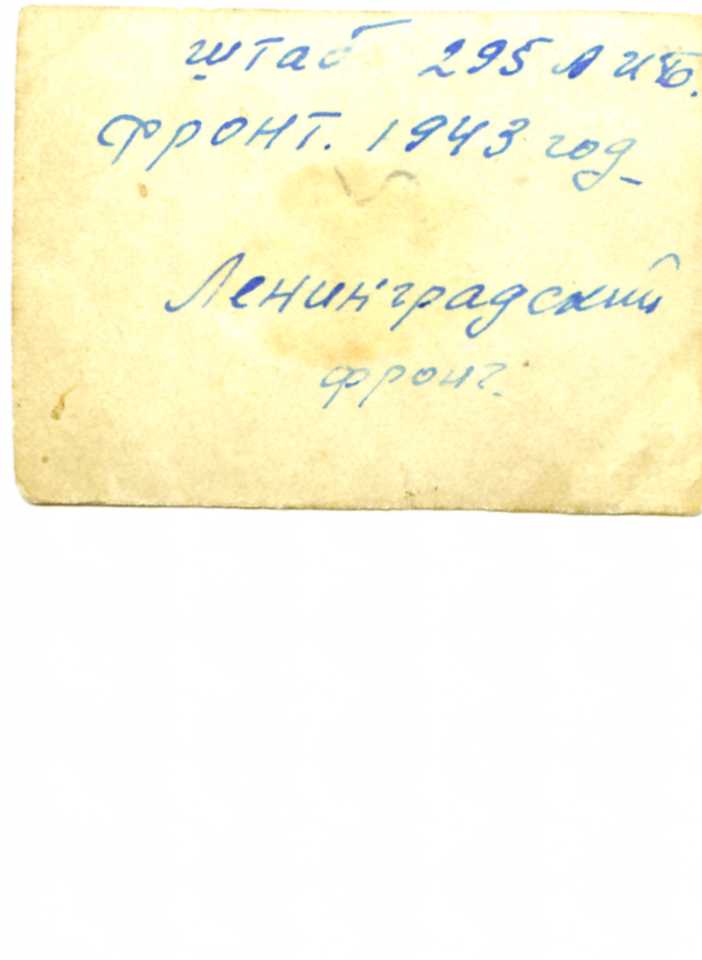 штаб 295 АИБ.
фронт. 1943 год
Ленинградский
фронт.